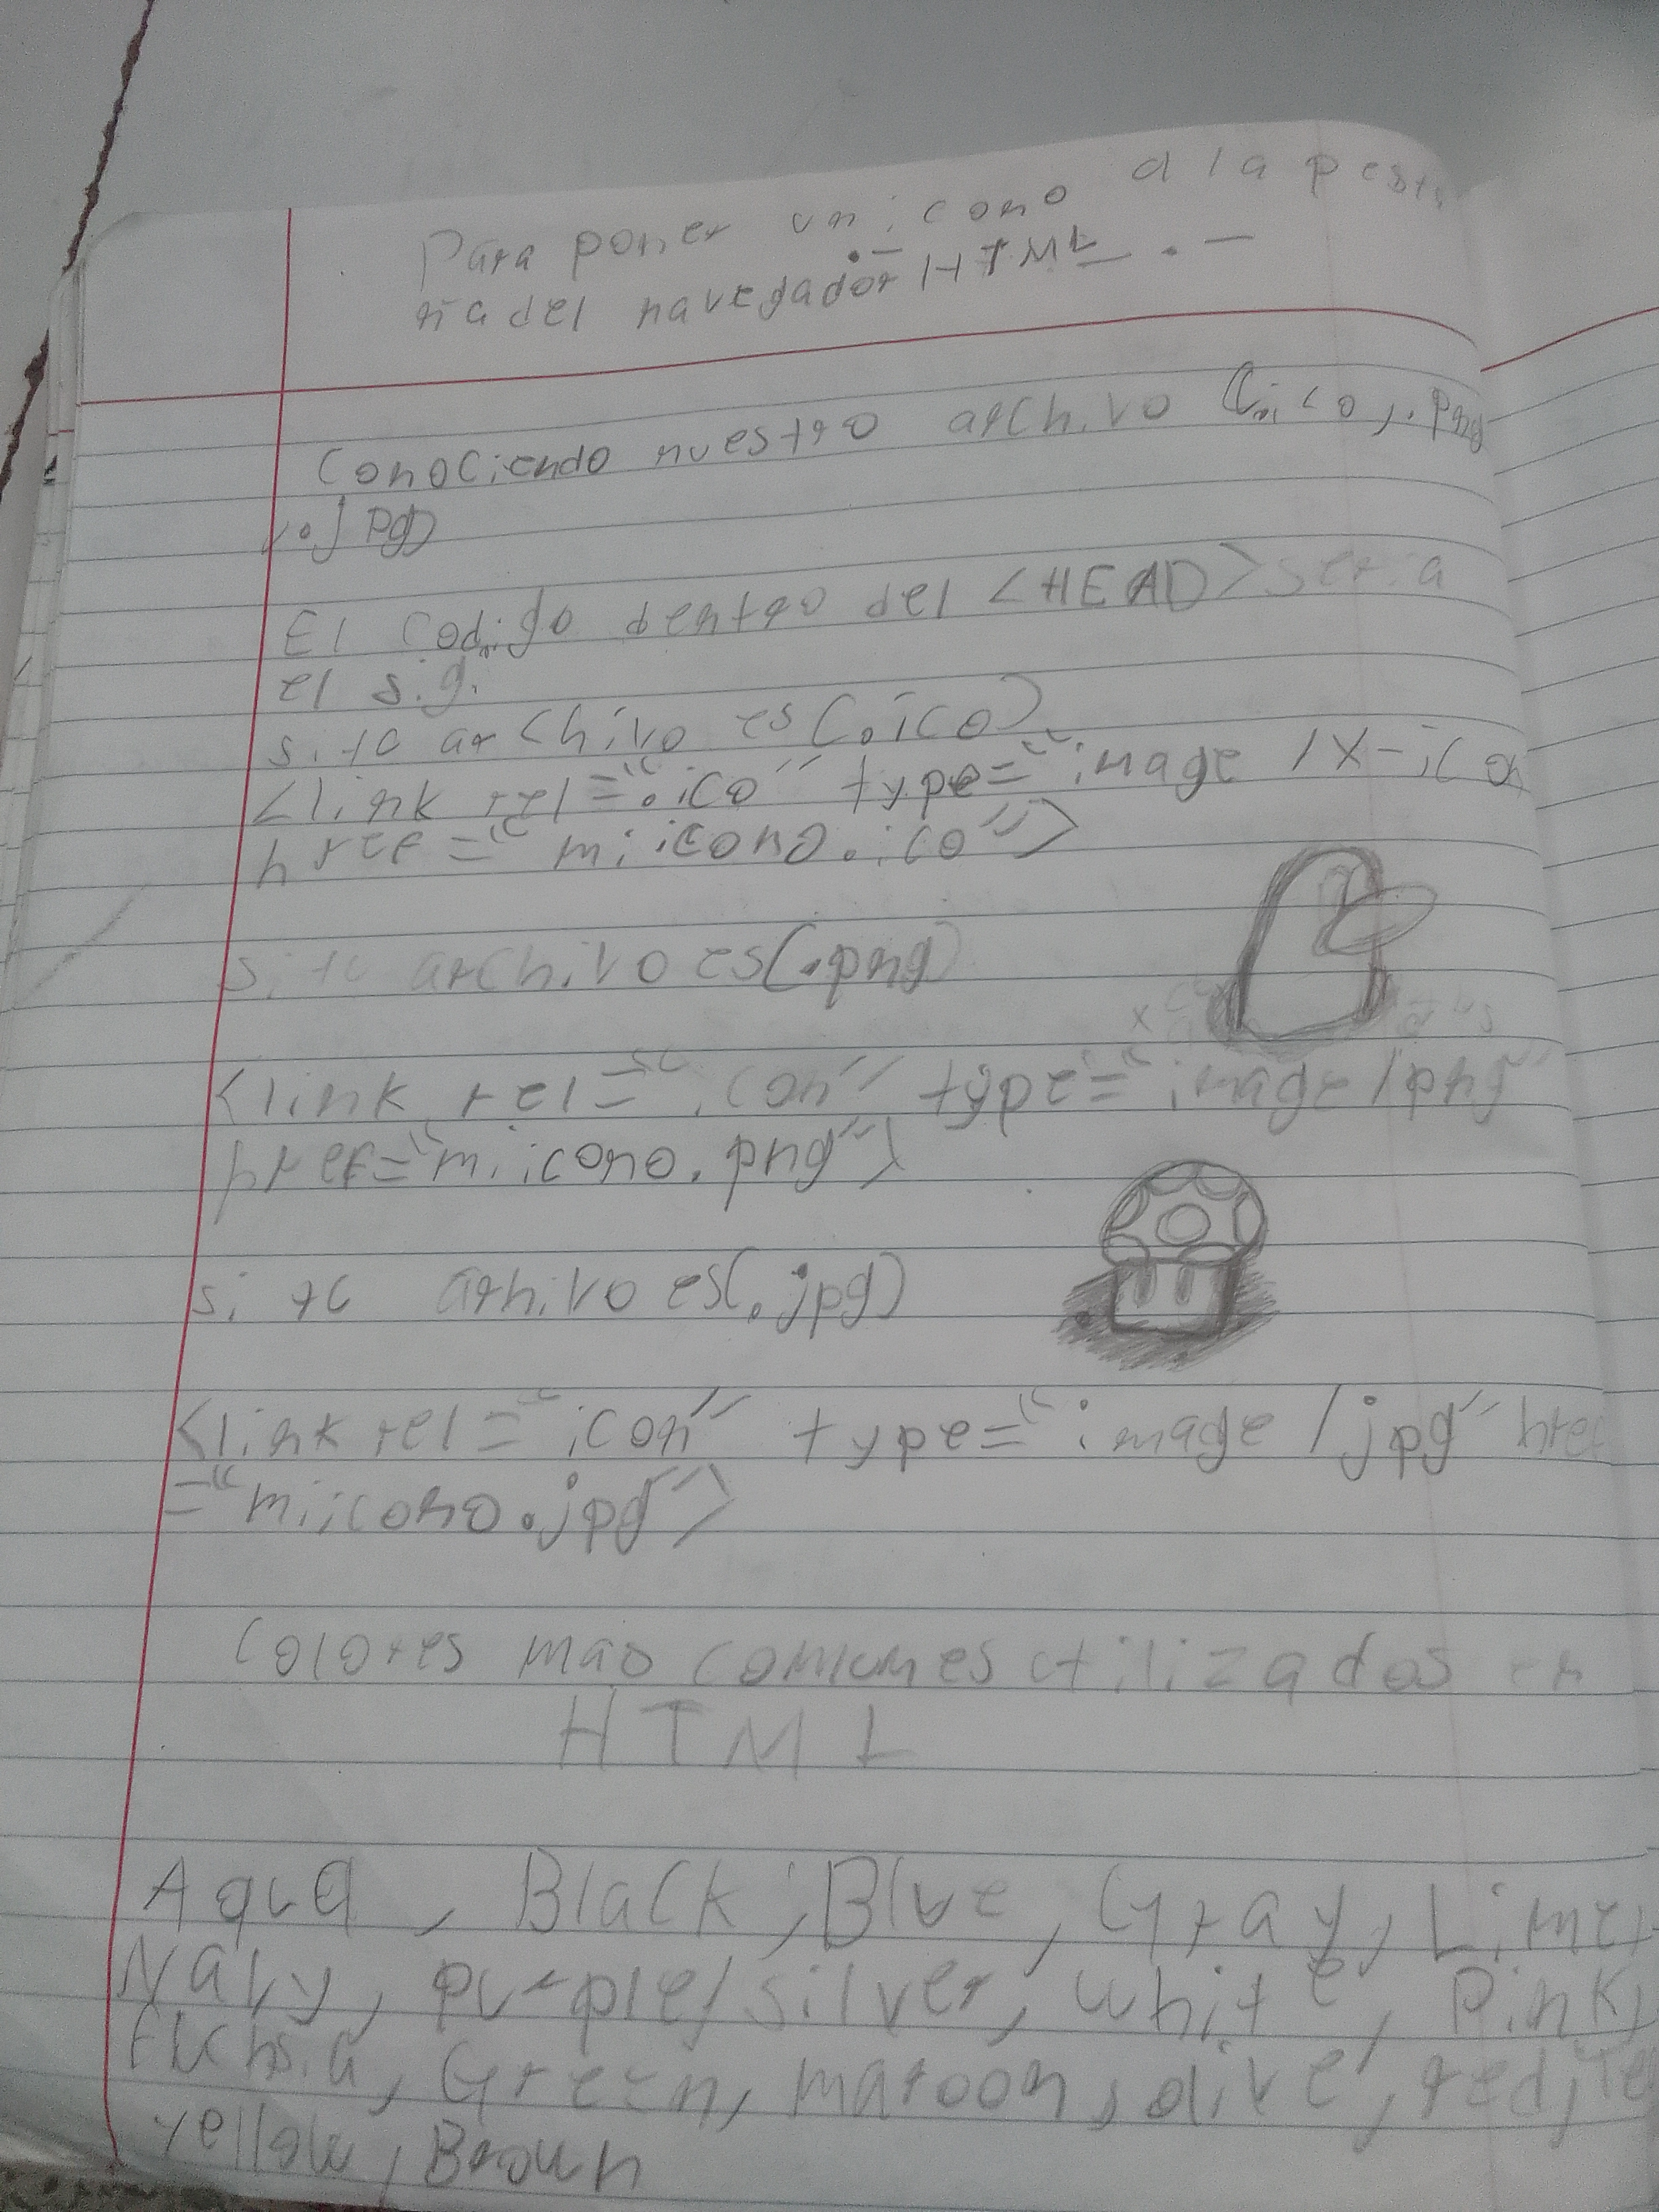 Para poner un icono a la pesta
ña del navegador HTML.-
Conociendo nuestro archivo (.ico, .png
, .jpg)
El codigo dentro del <HEAD> seria
el sig.
si tu archivo es (.ico)
<link rel=".ico" type="image/x-icon
href="miicono.ico">
si tu archivo es (.png)
<link rel="icon" type="image/png"
href="miicono.png">
si tu arhivo es (.jpg)
<link rel="icon" type="image/jpg" href
="miicono.jpg">
Colores mao comumes utilizados en
HTML
Aqua, Black, Blue, Gray, Lime,
Navy, purple, silver, white, Pink,
Fuchsia, Green, maroon, olive, red,
yellow, Brown